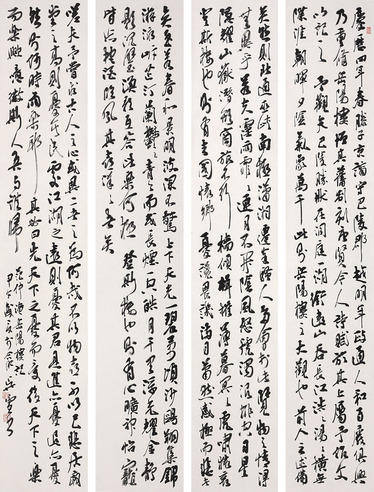 慶曆四年春滕子京謫守巴陵郡越明年政通人和百廢俱興
乃重修岳陽樓增其舊制刻唐賢今人詩賦於其上屬予作文
以記之予觀夫巴陵勝狀在洞庭一湖銜遠山吞長江浩浩湯湯橫無
際涯朝暉夕陰氣象萬千此則岳陽樓之大觀也前人之述備
矣然則北通巫峽南極瀟湘遷客騷人多會於此覽物之情得
無異乎若夫霪雨霏霏連月不開陰風怒號濁浪排空日星
隱耀山岳潛形商旅不行檣傾楫摧薄暮冥冥虎嘯猿啼
登斯樓也則有去國懷鄉憂讒畏譏滿目蕭然感極而悲者
矣至若春和景明波瀾不驚上下天光一碧萬頃沙鷗翔集錦
鱗游泳岸芷汀蘭郁郁青青而或長煙一空皓月千里浮光躍金靜
影沉璧漁歌互答此樂何極登斯樓也則有心曠神怡寵
辱皆忘把酒臨風其喜洋洋者矣
嗟夫予嘗求古仁人之心或異二者之為何哉不以物喜不以己悲居廟
堂之高則憂其民處江湖之遠則憂其君是進亦憂退亦憂
然則何時而樂耶其必曰先天下之憂而憂後天下之樂
而樂歟噫微斯人吾誰與歸
范仲淹岳陽樓記